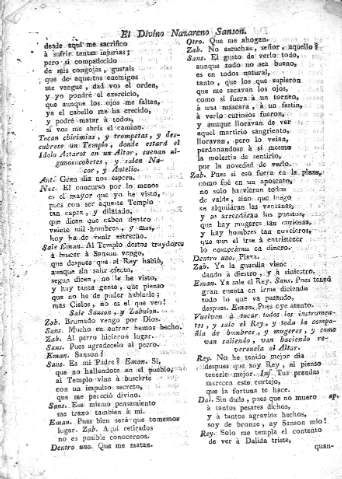 El Divino Nazareno Sanson.
desde aqui me sacrifico
à sufrir tantas injurias;
pero si compadecido
de mis congojas, gustais
que de aquestos enemigos
me vengue, dad voz el orden,
y yo pondré el exercicio,
que aunque los ojos me faltan,
ya el cabello me ha crecido,
y podré matar à todos,
si vos me abris el camino.
Tocan chirimias, y trompetas, y des-
cubrese un Templo, donde estará el
Idolo Astarot en un Altar,
y salen Na-
cor, y Astolio.
Gran dia nos espera.
Nac. El concurso por lo menos
es el mayor que yo he visto,
pues con ser aqueste Templo
tan capaz, y dilatado,
que dicen que caben dentro
veinte mil hombres, y mas,
hoy ha de venir estrecho.
Sale Eman. Al Templo destos traydores
à buscar à Sanson vengo,
que despues que el Rey habló,
aunque sin saber efecto,
segun dicen, no le ha visto,
y hay tanta gente, que pienso
que no he de poder hablarle;
mas Cielos, no es el que veo?
Sale Sanson, y Zabulon.
Zab. Brumado vengo por Dios.
Sans. Mucho en entrar hemos hecho.
Zab. Al perro hicieron lugar.
Sans. Pues agradecelo al perro.
Eman. Sanson?
Sans. Es mi Padre? Eman. Sí,
que no hallandote en el pueblo,
al Templo vine à buscarte
con un impulso secreto,
que me pareció divino.
Sans. Ese mismo pensamiento
me traxo tambien à mí.
Eman. Pues bien será que tomemos
lugar. Zab. Aquí retirados
no es posible conocernos.
Dentro uno. Que me matan.
Otro. Que me ahogan.
Zab. No escuchas, señor, aquello?
Sans. El gusto de verlo todo,
aunque todo no sea bueno,
es en todos natural,
tanto, que los que supieron
que me sacavan los ojos,
como si fuera à un torneo,
à una mascara, à un festin,
à verlo curiosos fueron,
y aunque lloravan de ver
aquel martirio sangriento,
lloravan, pero lo veian,
perdonandoos à sí mesmo
la molestia de sentirlo,
por la novedad de verlo.
Zab. Pues si eso fuera en la plaza,
como fue en un aposento,
no solo huvieran todos
de valde, sino que luego
se alquilaran las ventanas,
y se arrendara los puestos,
que hay mugeres tan curiosas,
y hay hombres tan noveleros,
que aun el irse à entristecer
lo compraran en dinero.
Dentro uno. Plaza.
Zab. Ya la guardia viene
dando à diestro, y à siniestro.
Eman. Ya sale el Rey. Sans. Pues tened
gran cuenta con irme diciendo
todo lo que va pasando,
despues. Eman. Pues oye atento.
Vuelven à tocar todos los instrumen-
tos, y sale el Rey, y toda la compa-
ñia de hombres, y mugeres, y como
van saliendo, van haciendo re-
verencia al Altar.
Rey. No he tenido mejor dia
despues que soy Rey, ni pienso
tenerle mejor. Inf. Tus prendas
merecen este cortejo,
que la fortuna te hace.
Dal. Sin duda, pues que no muero ap.
à tantos pesares dichos,
y à tantos agravios hechos,
soy de bronce, ay Sanson mio!
Rey. Solo me templa el contento
de ver à Dalida triste,
quan-